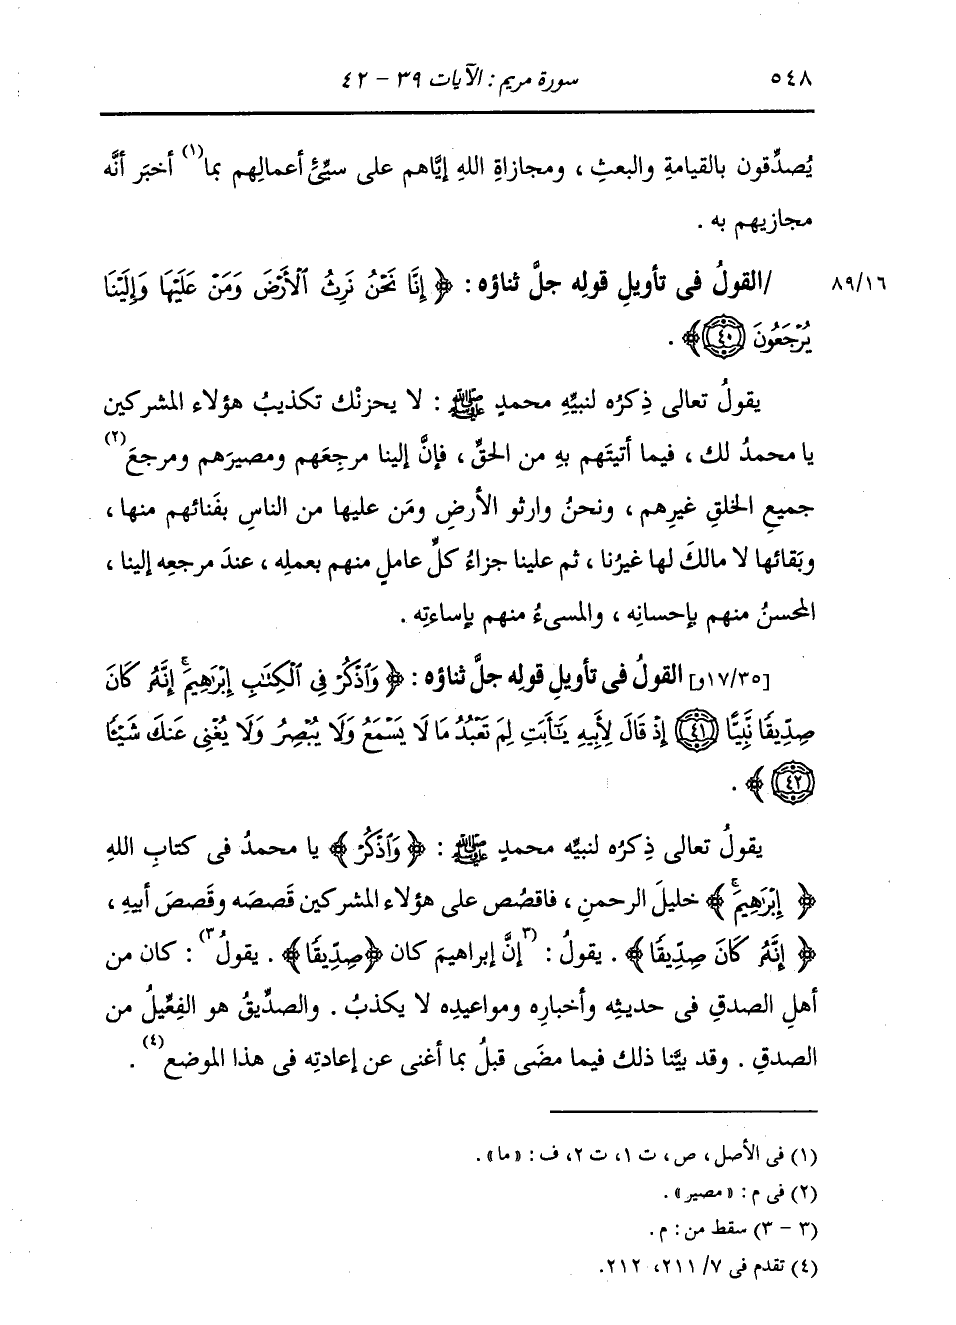 ٥٤٨ سورة مريم : الآيات ٣٩ - ٤٢
يُصدِّقون بالقيامةِ والبعثِ ، ومجازاةِ اللهِ إيَّاهم على سيِّئِ أعمالِهم بما(١) أخبَر أنَّه
مجازيهم به .
٨٩/١٦ /القولُ فى تأويلِ قولِه جلَّ ثناؤه : ﴿ إِنَّا نَحْنُ نَرِثُ ٱلْأَرْضَ وَمَنْ عَلَيْهَا وَإِلَيْنَا
يُرْجَعُونَ ﴿٤٠﴾ ﴾ .
يقولُ تعالى ذِكرُه لنبيِّه محمدٍ ﷺ : لا يحزنْك تكذيبُ هؤلاء المشركين
يا محمدُ لك ، فيما أتيتَهم بهِ من الحقِّ ، فإنَّ إلينا مرجِعَهم ومصيرَهم ومرجعَ(٢)
جميعِ الخلقِ غيرِهم ، ونحنُ وارثو الأرضِ ومَن عليها من الناسِ بفَنائهم منها ،
وبَقائها لا مالكَ لها غيرُنا ، ثم علينا جزاءُ كلِّ عاملٍ منهم بعملِه ، عندَ مرجعِه إلينا ،
المحسنُ منهم بإحسانِه ، والمسىءُ منهم بإساءتِه .
[١٧/٣٥و] القولُ فى تأويلِ قولِه جلَّ ثناؤه : ﴿ وَٱذْكُرْ فِى ٱلْكِتَٰبِ إِبْرَٰهِيمَ ۚ إِنَّهُۥ كَانَ
صِدِّيقًا نَّبِيًّا ﴿٤١﴾ إِذْ قَالَ لِأَبِيهِ يَٰٓأَبَتِ لِمَ تَعْبُدُ مَا لَا يَسْمَعُ وَلَا يُبْصِرُ وَلَا يُغْنِى عَنكَ شَيْـًٔا
﴿٤٢﴾ ﴾ .
يقولُ تعالى ذِكرُه لنبيِّه محمدٍ ﷺ : ﴿ وَٱذْكُرْ ﴾ يا محمدُ فى كتابِ اللهِ
﴿ إِبْرَٰهِيمَ ۚ ﴾ خليلَ الرحمنِ ، فاقصُص على هؤلاء المشركين قَصصَه وقَصصَ أبيهِ ،
﴿ إِنَّهُۥ كَانَ صِدِّيقًا ﴾ . يقولُ : (٣)إنَّ إبراهيمَ كان ﴿صِدِّيقًا﴾ . يقولُ(٣) : كان من
أهلِ الصدقِ فى حديثِه وأخبارِه ومواعيدِه لا يكذبُ . والصدِّيقُ هو الفِعِّيلُ من
الصدقِ . وقد بيَّنا ذلك فيما مضَى قبلُ بما أغنى عن إعادتِه فى هذا الموضعِ(٤) .
(١) فى الأصل ، ص ، ت ١، ت ٢، ف : «ما» .
(٢) فى م : «مصير» .
(٣ - ٣) سقط من : م .
(٤) تقدم فى ٧/ ٢١١، ٢١٢.